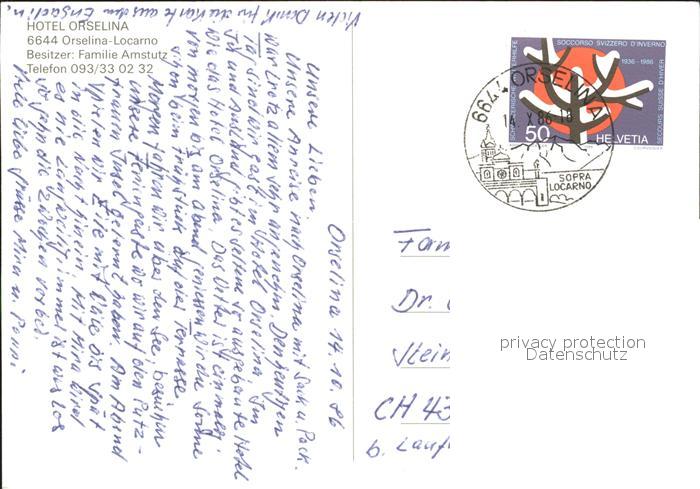 Vielen Dank für die Karte aus dem Engadin.
HOTEL ORSELINA
6644 Orselina-Locarno
Besitzer: Familie Amstutz
Telefon 093/33 02 32
Orselina 14.10.86
Unsere Lieben,
Unsere Anreise nach Orselina mit Sack u. Pack.
war trotz allem sehr angenehm. Den heutigen
Tag sind wir Gast im Hotel Orselina. Im
In- und Ausland gibt es selten so ausgebaute Hotel
wie das Hotel Orselina. Das Wetter ist einmalig
von morgen bis am Abend geniessen wir die Sonne
schon beim Frühstück auf der Terrasse.
Morgen fahren wir über den See, besuchen
unsere Feriengäste wo wir auf den
Insel gelernt haben. Am Abend
wir Zite mit bis spät
in die Nacht hinein. Mit Mira wird
es nie langweilig immer ist was los
so geht die Zit vorbei.
Viele liebe Grüsse Mira u.
SCHWEIZERISCHE WINTERHILFE
SOCCORSO SVIZZERO D'INVERNO
1936-1986
SECOURS SUISSE D'HIVER
50
HELVETIA
6644 ORSELINA
14.X.86-18
SOPRA
LOCARNO
Fam
Dr.
Stein
CH 43
b. Lauf
privacy protection
Datenschutz